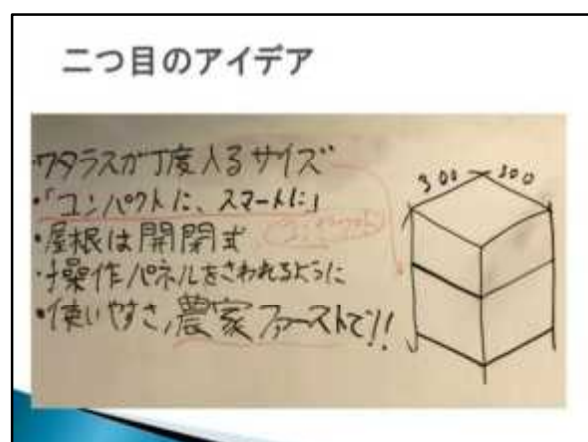 二つ目のアイデア
・ワタラスが丁度入るサイズ
・「コンパクトに、スマートに」
・屋根は開閉式
・操作パネルをさわれるように
・使いやすさ,農家ファーストで!!
300 300